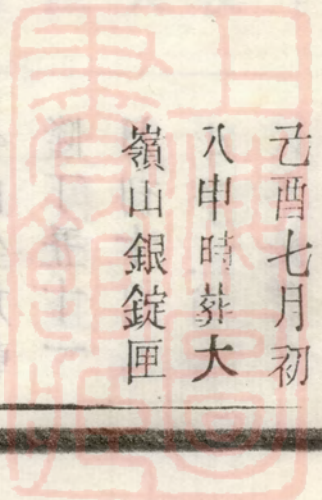 己酉七月初
八申時葬大
嶺山銀錠匣